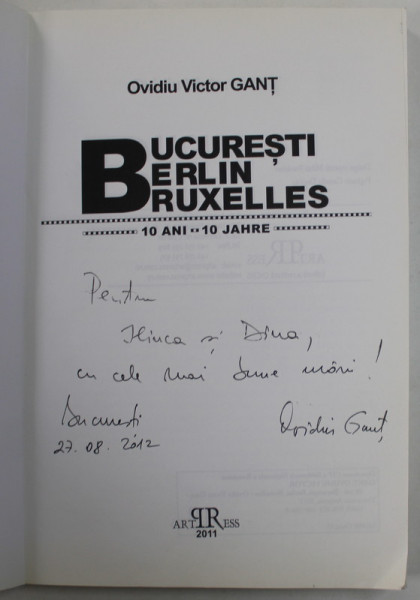 Ovidiu Victor GANȚ
BUCUREȘTI
BERLIN
BRUXELLES
10 ANI 10 JAHRE
Pentru
Ilinca și Dina,
cu cele mai bune urări!
București
27.08.2012
Ovidiu Ganț
ART PRESS
2011